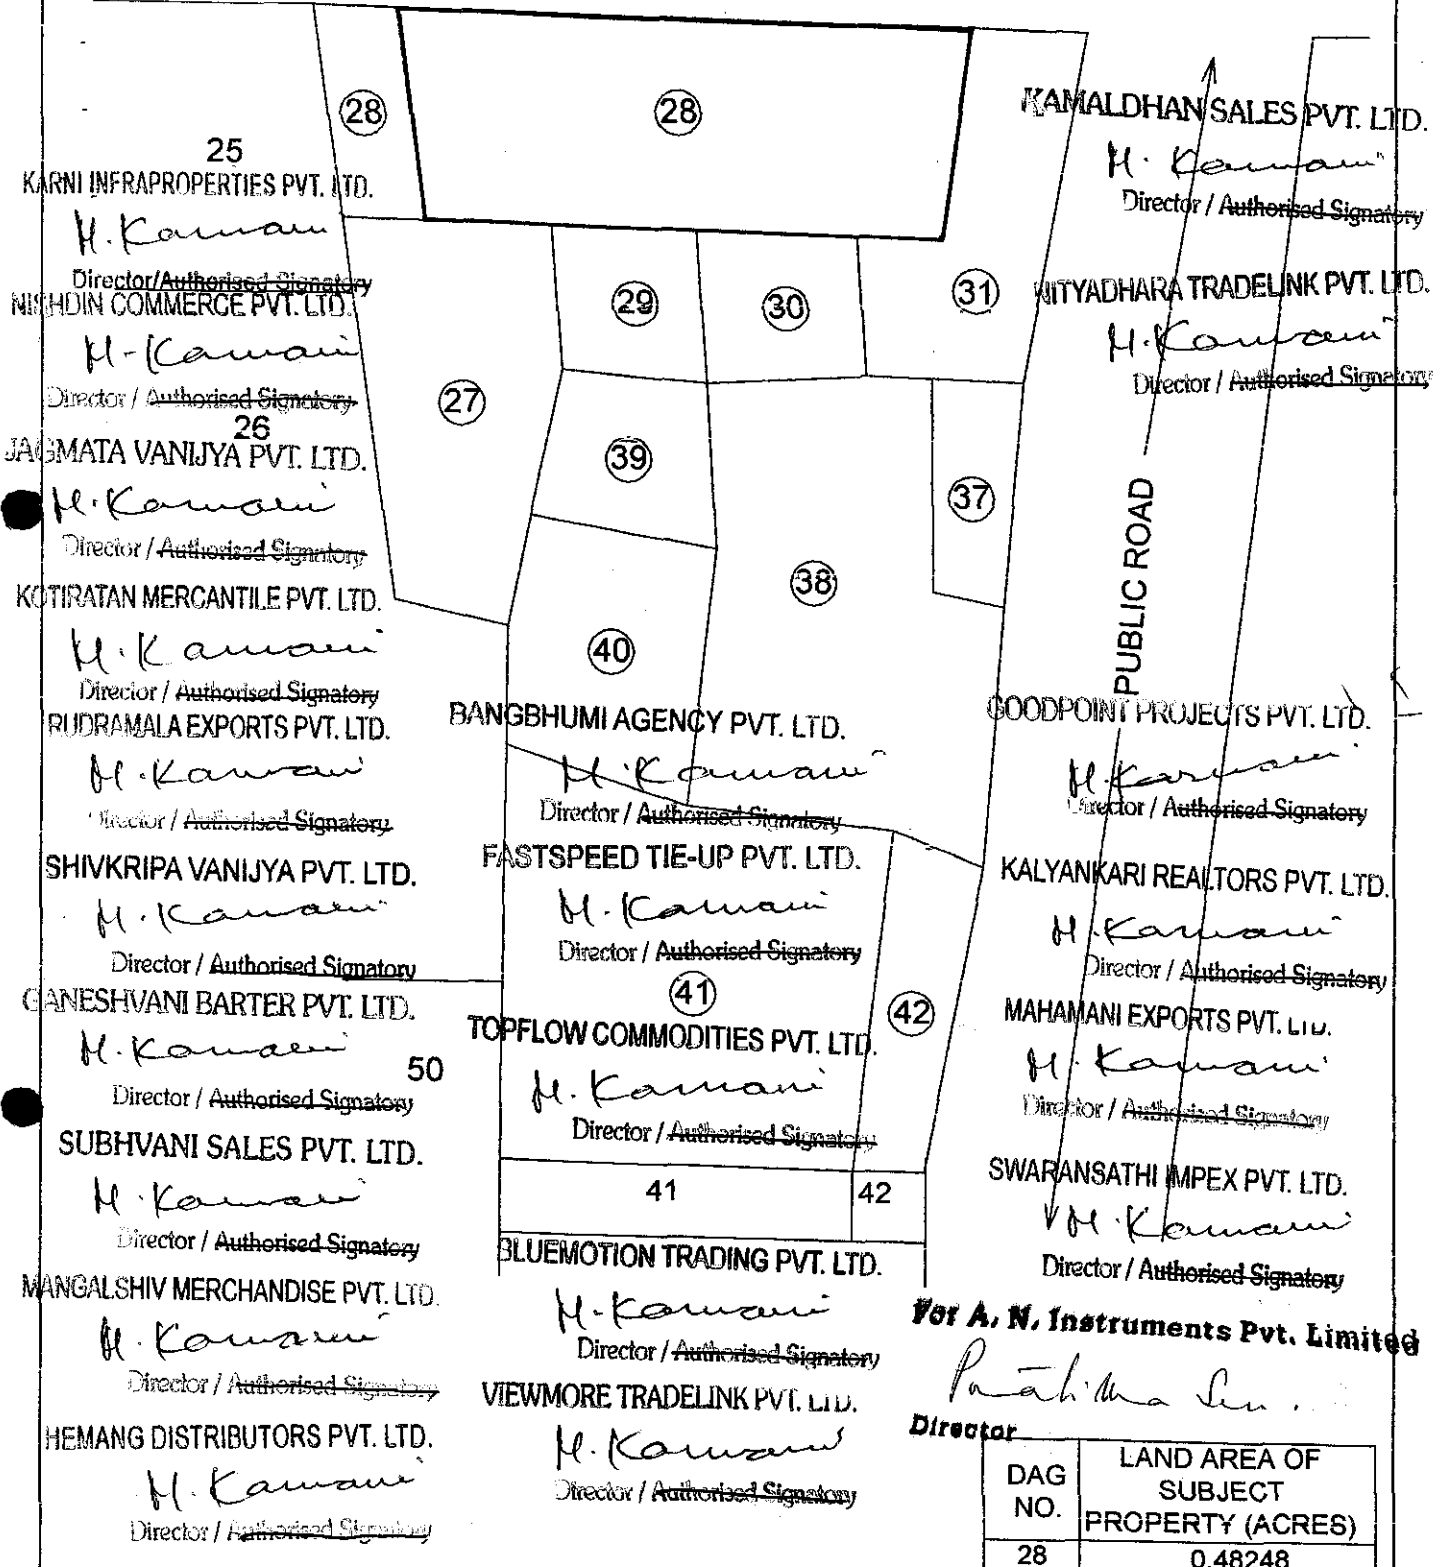 28
28
25
KARNI INFRAPROPERTIES PVT. LTD.
H. Karnani
Director/Authorised Signatory
NISHDIN COMMERCE PVT. LTD.
H. Karnani
Director / Authorised Signatory
26
JAGMATA VANIJYA PVT. LTD.
H. Karnani
Director / Authorised Signatory
KOTIRATAN MERCANTILE PVT. LTD.
H. Karnani
Director / Authorised Signatory
RUDRAMALA EXPORTS PVT. LTD.
H. Karnani
Director / Authorised Signatory
SHIVKRIPA VANIJYA PVT. LTD.
H. Karnani
Director / Authorised Signatory
GANESHVANI BARTER PVT. LTD.
H. Karnani
50
Director / Authorised Signatory
SUBHVANI SALES PVT. LTD.
H. Karnani
Director / Authorised Signatory
MANGALSHIV MERCHANDISE PVT. LTD.
H. Karnani
Director / Authorised Signatory
HEMANG DISTRIBUTORS PVT. LTD.
H. Karnani
Director / Authorised Signatory
29
30
31
27
39
37
38
40
BANGBHUMI AGENCY PVT. LTD.
H. Karnani
Director / Authorised Signatory
FASTSPEED TIE-UP PVT. LTD.
H. Karnani
Director / Authorised Signatory
41
42
TOPFLOW COMMODITIES PVT. LTD.
H. Karnani
Director / Authorised Signatory
41
42
BLUEMOTION TRADING PVT. LTD.
H. Karnani
Director / Authorised Signatory
VIEWMORE TRADELINK PVT. LTD.
H. Karnani
Director / Authorised Signatory
KAMALDHAN SALES PVT. LTD.
H. Karnani
Director / Authorised Signatory
NITYADHARA TRADELINK PVT. LTD.
H. Karnani
Director / Authorised Signatory
PUBLIC ROAD
GOODPOINT PROJECTS PVT. LTD.
H. Karnani
Director / Authorised Signatory
KALYANKARI REALTORS PVT. LTD.
H. Karnani
Director / Authorised Signatory
MAHAMANI EXPORTS PVT. LTD.
H. Karnani
Director / Authorised Signatory
SWARANSATHI IMPEX PVT. LTD.
H. Karnani
Director / Authorised Signatory
For A. N. Instruments Pvt. Limited
Sen.
Director
DAG NO.
LAND AREA OF SUBJECT PROPERTY (ACRES)
28
0.48248